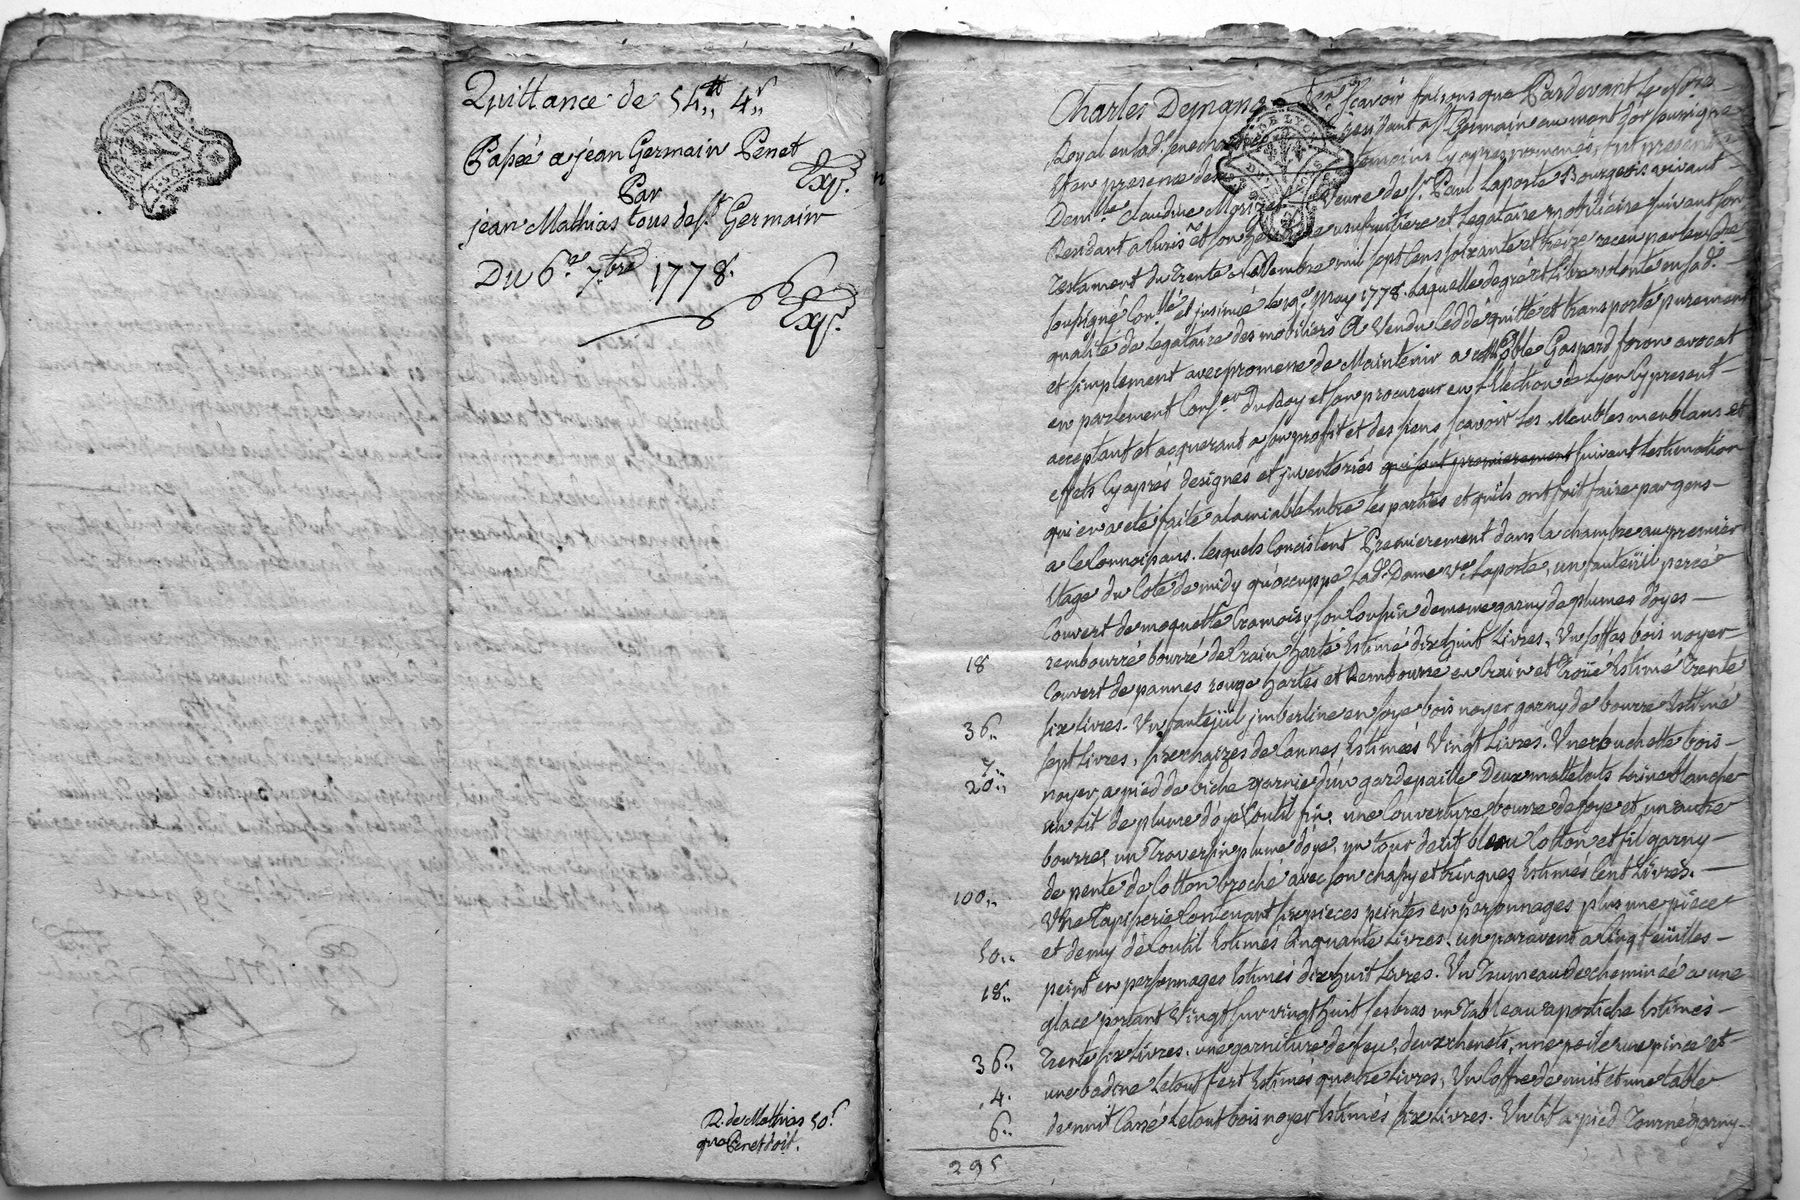 Quittance de 54.tt 4.s
Passée a jean Germain Penet
Exp.
Par
jean Mathias tous de St Germain
Du 6.e 7.bre 1778.
Exp.
R. de Mathias 50.s
que Penet doit.
Charles Demane scavoir faisons que Pardevant le Nore
Royal en lad. senechaussée residant a St Germain au mont d'or soussigné
Et en presence des temoins cy apres nommés, fut presente
Dem.lle Claudine veuve de Sr. Paul Laporte Bourgeois vivant
Residant a usufruitiere et Legataire mobiliaire suivant son
Testament du trente Novembre mil sept cens soixante et treize receu par le no.re
soussigné Con.llé et insinué le 19.e May 1778. Laquelle de gré et libre volonté en sad.
qualité de legataire des mobiliers A Vendu cedde quitte et transporte purement
et simplement avec promesse de Maintenir a Noble Gaspard foron avocat
en parlement Con.er du Roy et son procureur en l'Election de Lyon Cy present
acceptant et acquerant a son profit et des siens scavoir Les Meubles meublans et
effets Cy aprés designés et inventoriés qui sont premierement suivant lestimation
qui en a eté faite alamiable Entre les parties et quils ont fait faire par gens
a ce Connoissans. lesquels Concistent Premierement dans la chambre au premier
Etage du Coté de midy qu'occuppe Lad. Dame v.e Laporte, un fauteüil percé
Couvert de moquette Cramoisy son Coussin de meme garny de plumes d'oyes
18 rembourré bourré de Crain Estimé dix huit Livres, Un soffas bois noyer
Couvert de pannes rouge et Rembourré en Crain et Estimé Trente
36.. six Livres. Un fauteüil en soye bois noyer garny de bourre Estimé
7.. sept Livres, six chaizes de Cannes Estimées Vingt Livres. Une couchette bois
20.. noyer a pied de biche garnie d'un garde paille Deux mattelats Laine blanche
un Lit de plume d'oye Coutil fin, une Couverture bourre de soye et un autre
bourre, un Traversin plume d'oye, un tour de lit bleu Cotton et fil garny
100.. de pente de Cotton broché avec son chapy et tringues Estimés Cent Livres.
Une Tapisserie Contenant six pieces peintes en personnages plus une piece
50.. et demy de Coutil Estimés Cinquante Livres. un paravent a Cinq feüilles
18.. peint en personnages Estimés dix huit Livres. Un Trumeau de cheminée a une
glace portant Vingt sur vingt huit ses bras un Tableau Estimés
36.. Trente six Livres. une garniture de feu, deux chenets, une pele une pince et
4. une badine Le tout fert Estimés quatre Livres, Un Coffre de nuit et une table
6.. de nuit Carré Le tout bois noyer Estimés six Livres. Un lit a pied Tourné garny
295